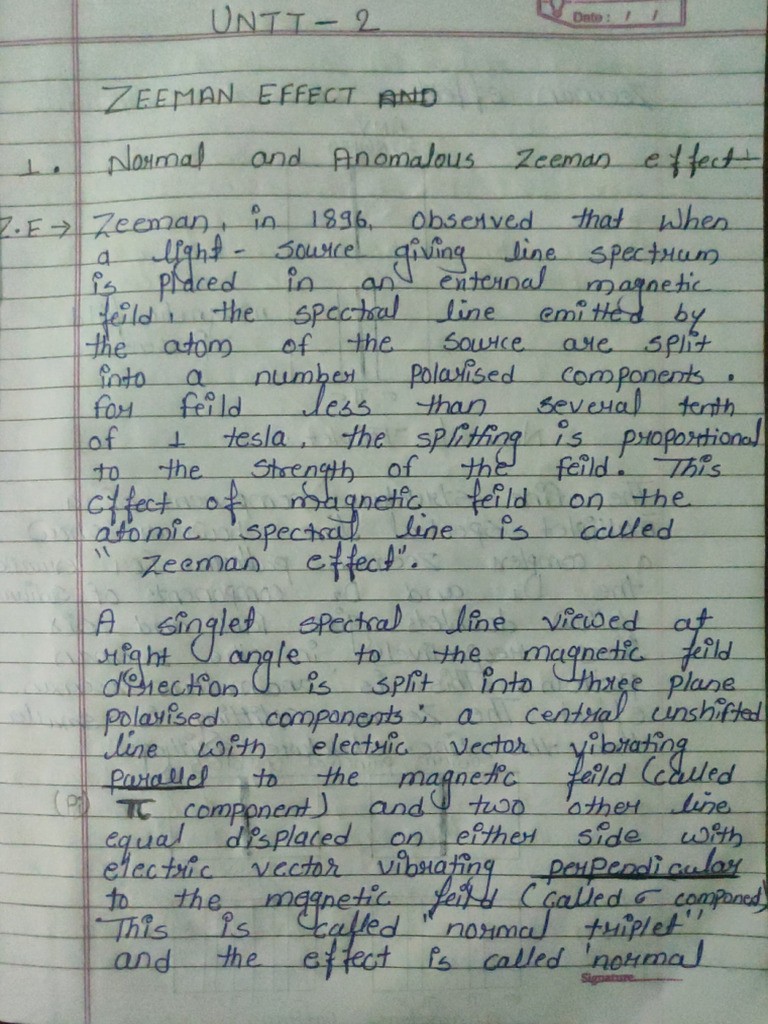 UNIT - 2
Date : / /
ZEEMAN EFFECT AND
1. Normal and Anomalous Zeeman effect
Z.E → Zeeman, in 1896, observed that when
a light - source giving line spectrum
is placed in an external magnetic
feild, the spectral line emitted by
the atom of the source are split
into a number polarised components.
for feild less than several tenth
of 1 tesla, the splitting is proportional
to the strength of the feild. This
effect of magnetic feild on the
atomic spectral line is called
" Zeeman effect".
A singlet spectral line viewed at
right angle to the magnetic feild
direction is split into three plane
polarised components; a central unshifted
line with electric vector vibrating
parallel to the magnetic feild (called
(Pi) π component) and two other line
equal displaced on either side with
electric vector vibrating perpendicular
to the magnetic feild (called σ componed)
This is called "normal triplet"
and the effect is called 'normal
Signature